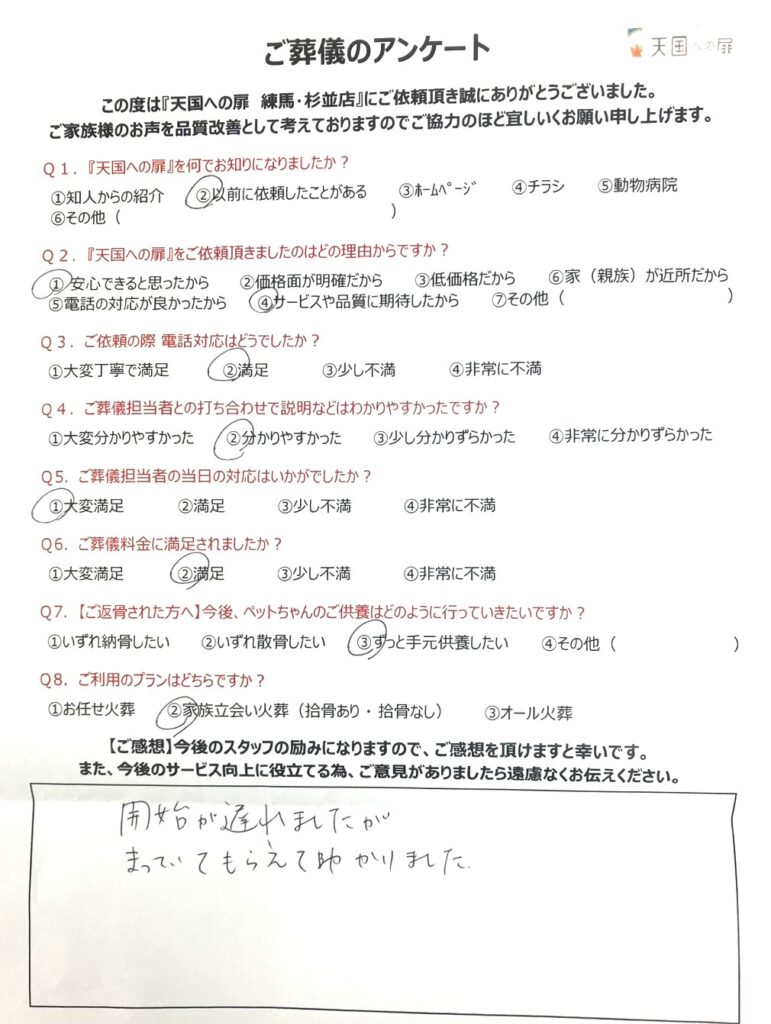 ご葬儀のアンケート
天国への扉
この度は『天国への扉 練馬・杉並店』にご依頼頂き誠にありがとうございました。
ご家族様のお声を品質改善として考えておりますのでご協力のほど宜しいくお願い申し上げます。
Q1.『天国への扉』を何でお知りになりましたか?
①知人からの紹介 ②以前に依頼したことがある ③ホームページ ④チラシ ⑤動物病院
⑥その他( )
Q2.『天国への扉』をご依頼頂きましたのはどの理由からですか?
①安心できると思ったから ②価格面が明確だから ③低価格だから ⑥家(親族)が近所だから
⑤電話の対応が良かったから ④サービスや品質に期待したから ⑦その他( )
Q3.ご依頼の際 電話対応はどうでしたか?
①大変丁寧で満足 ②満足 ③少し不満 ④非常に不満
Q4.ご葬儀担当者との打ち合わせで説明などはわかりやすかったですか?
①大変分かりやすかった ②分かりやすかった ③少し分かりずらかった ④非常に分かりずらかった
Q5.ご葬儀担当者の当日の対応はいかがでしたか?
①大変満足 ②満足 ③少し不満 ④非常に不満
Q6.ご葬儀料金に満足されましたか?
①大変満足 ②満足 ③少し不満 ④非常に不満
Q7.【ご返骨された方へ】今後、ペットちゃんのご供養はどのように行っていきたいですか?
①いずれ納骨したい ②いずれ散骨したい ③ずっと手元供養したい ④その他( )
Q8.ご利用のプランはどちらですか?
①お任せ火葬 ②家族立会い火葬(拾骨あり・拾骨なし) ③オール火葬
【ご感想】今後のスタッフの励みになりますので、ご感想を頂けますと幸いです。
また、今後のサービス向上に役立てる為、ご意見がありましたら遠慮なくお伝えください。
開始が遅れましたが
まっていてもらえて助かりました.